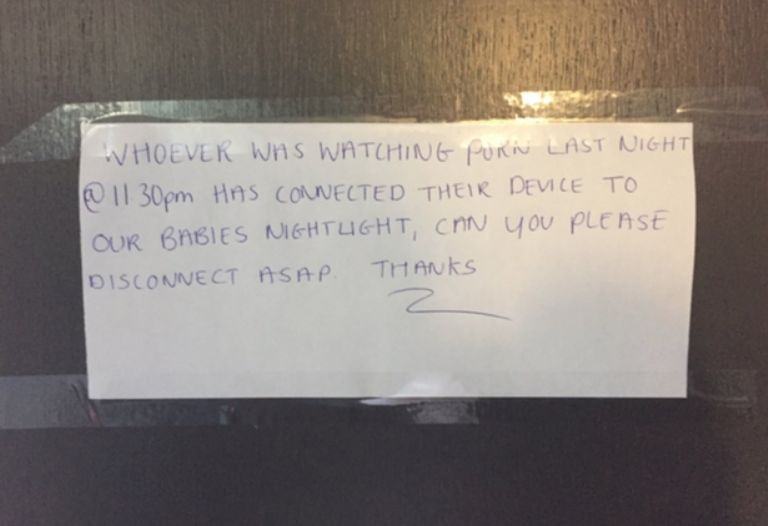 WHOEVER WAS WATCHING PORN LAST NIGHT
@ 11 30pm HAS CONNECTED THEIR DEVICE TO
OUR BABIES NIGHTLIGHT, CAN YOU PLEASE
DISCONNECT ASAP. THANKS